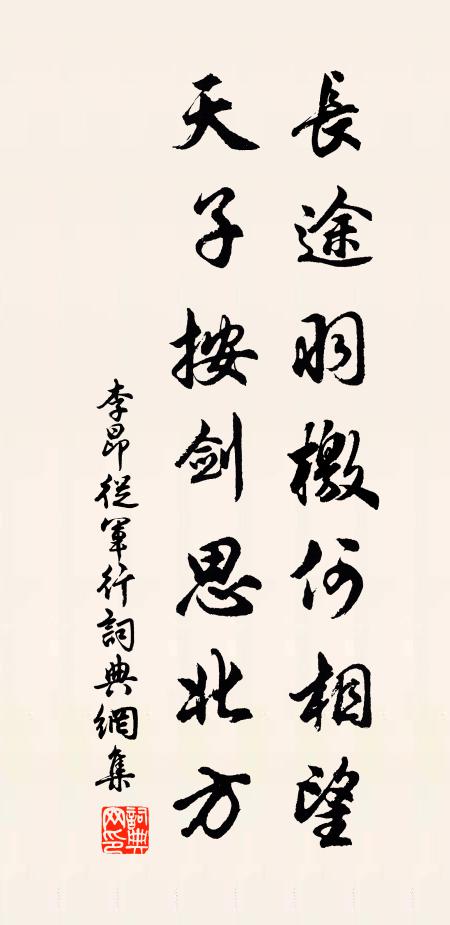 長途羽檄何相望
天子按剑思北方
李昂從軍行詞典網集
詞典网印